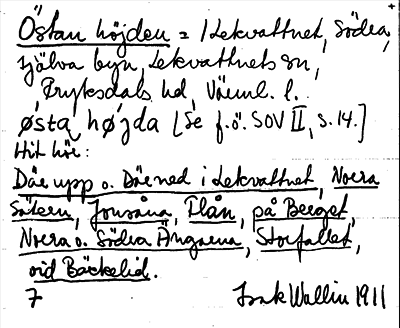 Östan höjden = i Lekvattnet, Södra,
själva byn, Lekvattnets sn,
Fryksdals hd, Värml. l.
østa højda [Se f.ö. SOV II, s. 14.]
Hit hör:
Där upp o. Där ned i Lekvattnet, Norra
Sätern, Jonsåna, Flån, på Berget,
Norra o. Södra Ängarna, Storfallet,
vid Bäckelid.
7 Isak Wallin 1911